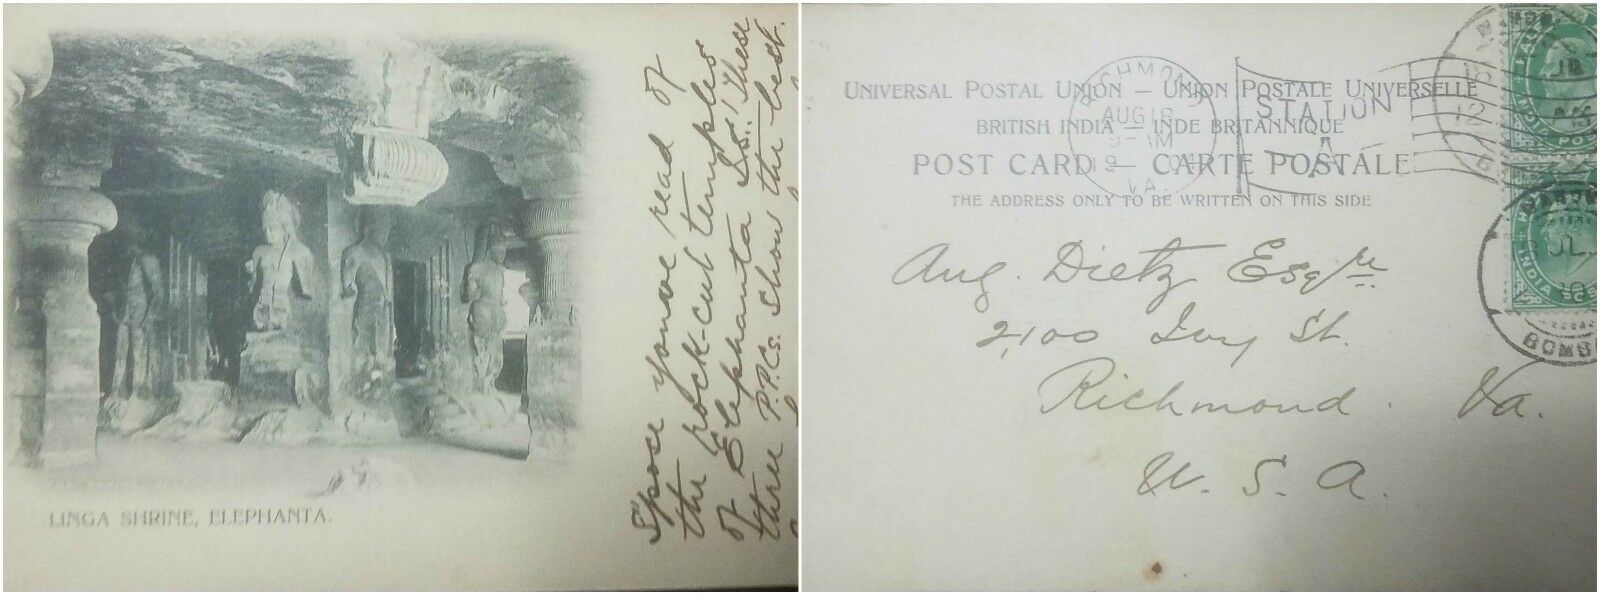 LINGA SHRINE, ELEPHANTA.
Spose youve read of
the rock-cut temples
of Elephanta Is.! These
three P.P.Cs. show the best.
UNIVERSAL POSTAL UNION — UNION POSTALE UNIVERSELLE
BRITISH INDIA — INDE BRITANNIQUE
POST CARD — CARTE POSTALE
THE ADDRESS ONLY TO BE WRITTEN ON THIS SIDE
RICHMOND
AUG 18
AM
VA.
STATION
A
Aug. Dietz Esqre
2100 Ivy St.
Richmond. Va.
U. S. A.
HALF
INDIA PO
INDIA
BOMB